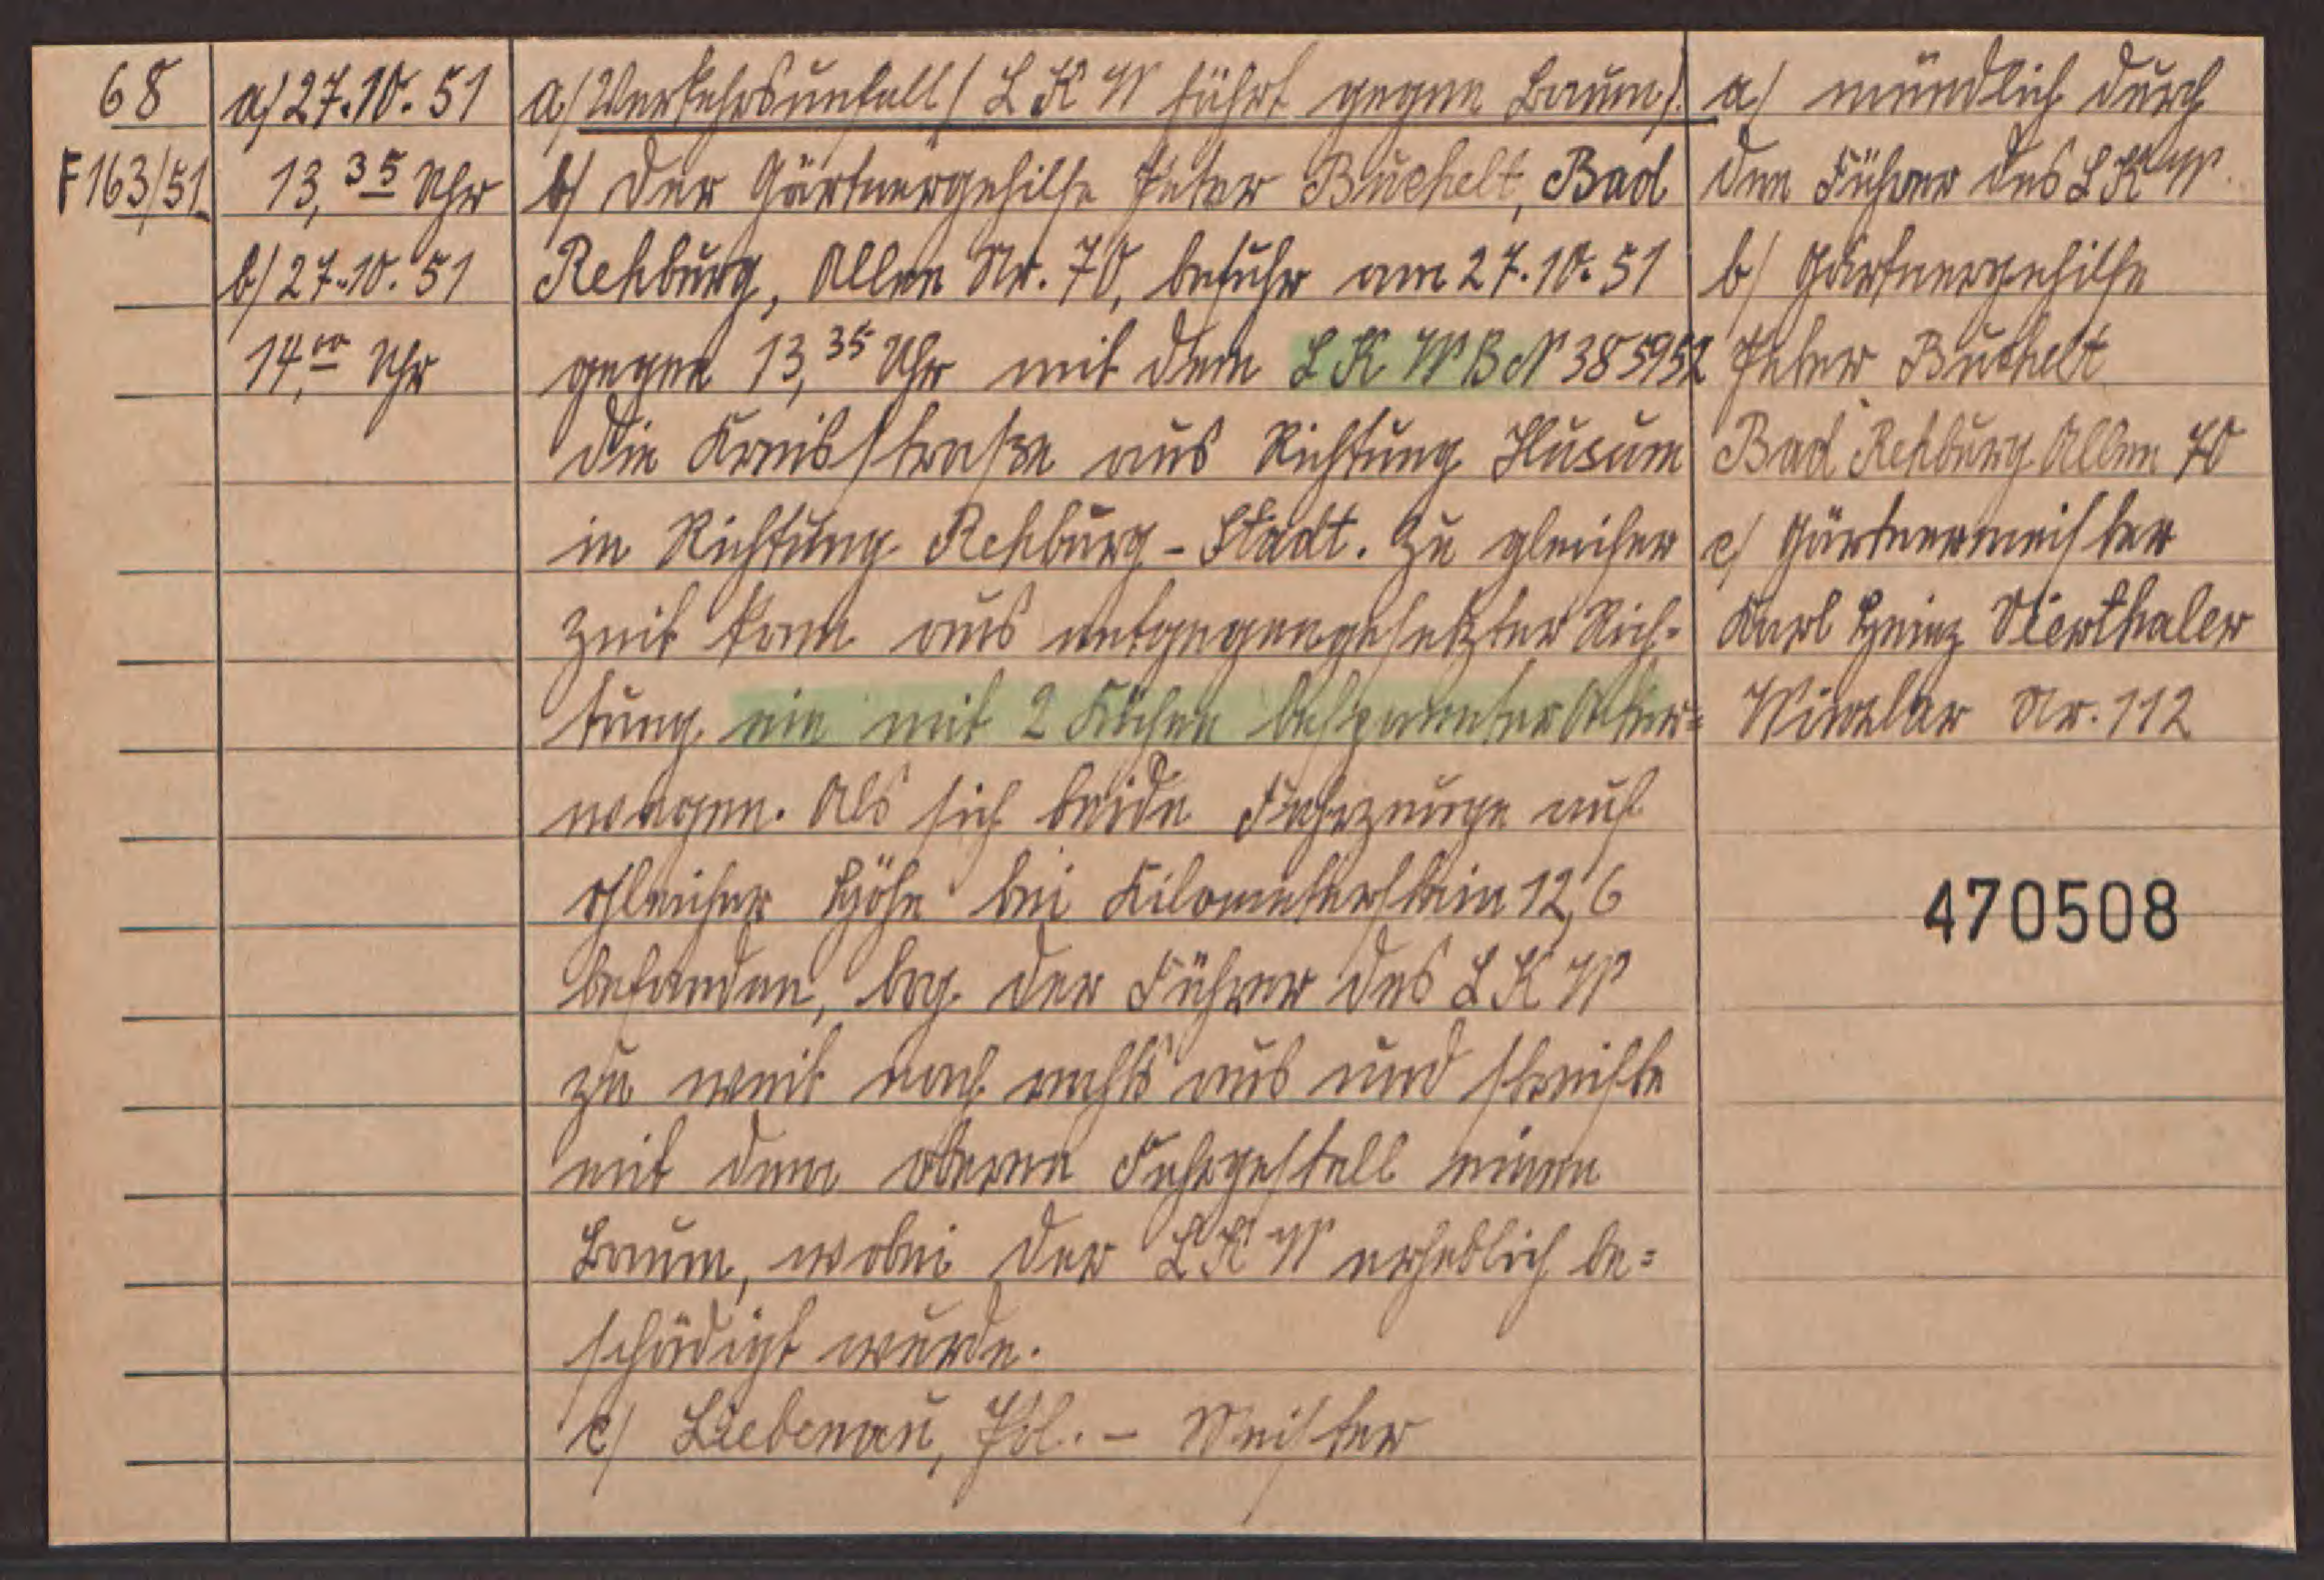 68
F 163/51
a) 27.10.51
13,35 Uhr
b) 27.10.51
14,00 Uhr
a) Verkehrsunfall (LKW fährt gegen Baum).
b) Der Gärtnergehilfe Peter Buchelt, Bad
Rehburg, Allee Nr. 70, befuhr am 27.10.51
gegen 13,35 Uhr mit dem LKW BN 385952
die Kreisstraße aus Richtung Husum
in Richtung Rehburg-Stadt. Zu gleicher
Zeit kam aus entgegengesetzter Rich-
tung ein mit 2 Kühen bespannter Acker=
wagen. Als sich beide Fahrzeuge auf
gleicher Höhe bei Kilometerstein 12,6
befanden, bog der Führer des LKW
zu weit nach rechts aus und streifte
mit dem oberen Fahrgestell einen
Baum, wobei der LKW erheblich be=
schädigt wurde.
c) Liebenau, Pol.- Meister
a) mündlich durch
den Führer des LKW.
b) Gärtnergehilfe
Peter Buchelt
Bad Rehburg Allee 70
c) Gärtnermeister
Karl Heinz Nierthaler
Winzlar Nr. 112
470508